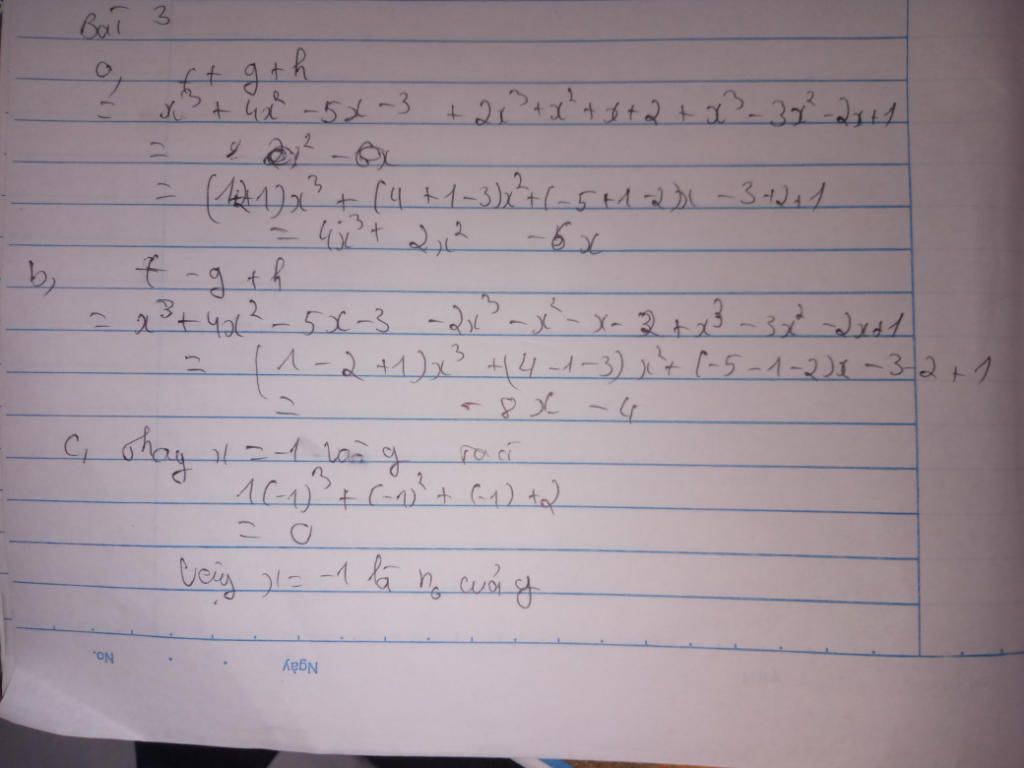 Bài 3
a, f + g + h
= x³ + 4x² - 5x - 3 + 2x³ + x² + x + 2 + x³ - 3x² - 2x + 1
= 2x² - 6x
= (1+2+1)x³ + (4 + 1 - 3)x² + (-5 + 1 - 2)x - 3 + 2 + 1
= 4x³ + 2x² - 6x
b, f - g + h
= x³ + 4x² - 5x - 3 - 2x³ - x² - x - 2 + x³ - 3x² - 2x + 1
= (1 - 2 + 1)x³ + (4 - 1 - 3)x² + (-5 - 1 - 2)x - 3 - 2 + 1
= - 8x - 4
c, thay x = -1 vào g
(-1)³ + (-1)² + (-1) + 2
= 0
Vậy x = -1 là n₀ của g
Ngày
No.